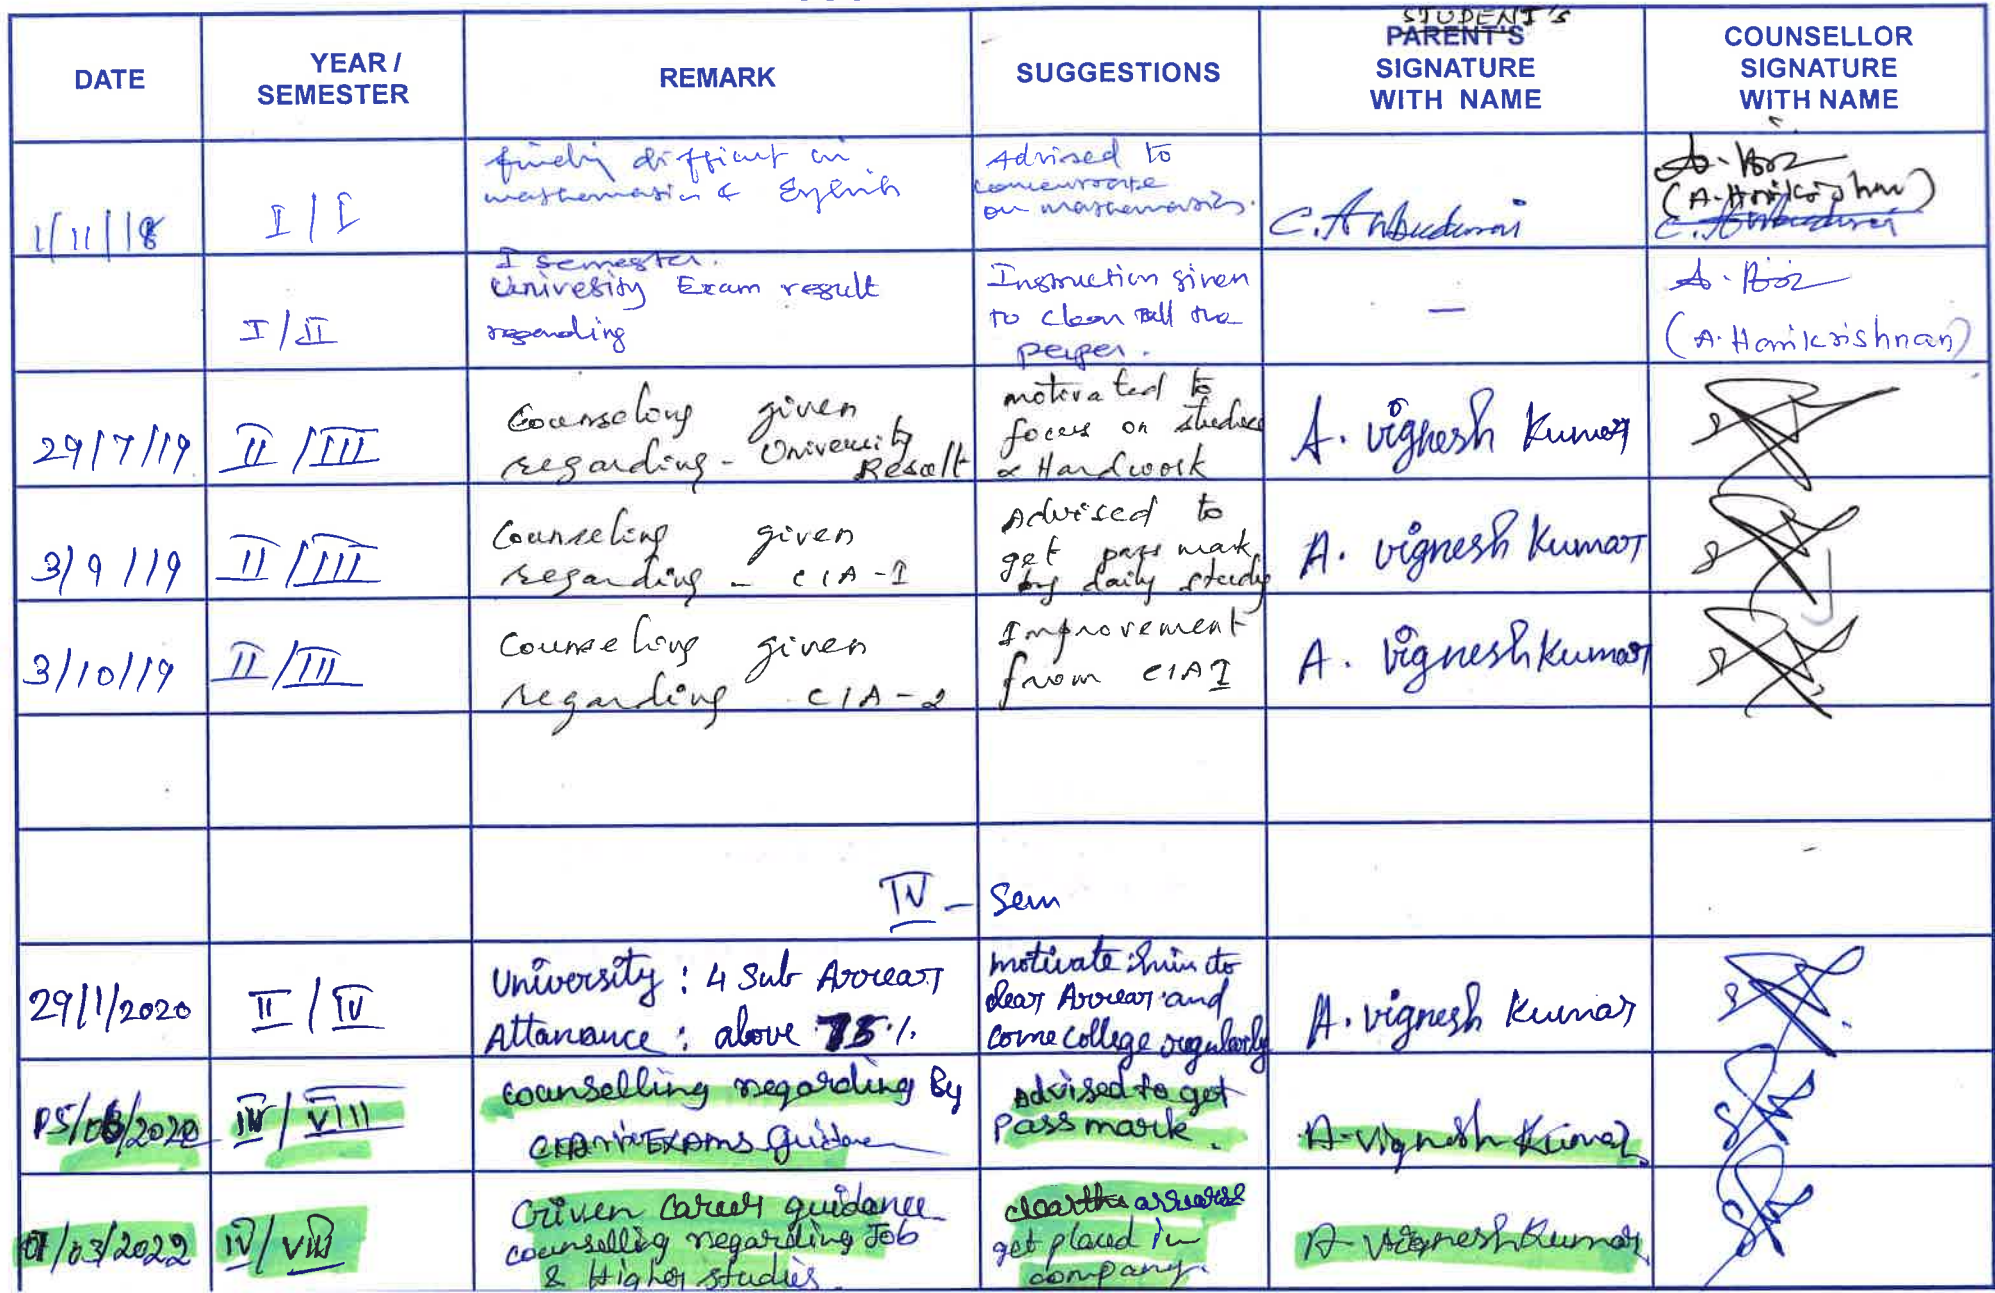 STUDENT'S
DATE
YEAR /
SEMESTER
REMARK
SUGGESTIONS
PARENT'S
SIGNATURE
WITH NAME
COUNSELLOR
SIGNATURE
WITH NAME
1/11/18
I/I
difficult in
mathematics & English
Advised to
concentrate
on mathematics.
C. Anbudurai
(A. Harikrishnan)
C. Anbudurai
I/II
I semester.
Univesity Exam result
regarding
Instruction given
to clear all the
paper.
—
(A. Harikrishnan)
29/7/19
II/III
Counseling given
regarding - University
Result
motivated to
focus on studies
& Hardwork
A. Vignesh Kumar
3/9/19
II/III
Counseling given
regarding - CIA-I
Advised to
get pass mark
by daily study
A. Vignesh Kumar
3/10/19
II/III
Counseling given
regarding CIA-2
Improvement
from CIA I
A. Vignesh Kumar
IV - Sem
29/1/2020
II/IV
University : 4 Sub Arrear
Attanance : above 75%
motivate him to
clear Arrear and
come college regularly
A. Vignesh Kumar
IV/VIII
counselling regarding By
Exams
Advised to get
Pass mark.
A. Vignesh Kumar
/03/2022
IV/VIII
Given career guidance
counsellig regarding Job
& Higher studies.
clear the arrears
get placed in
company.
A Vignesh Kumar